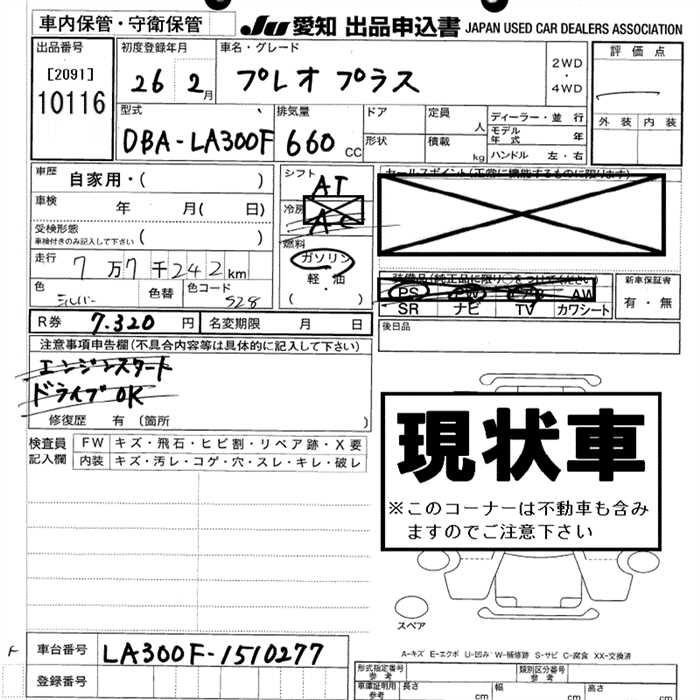 車内保管・守衛保管
JU 愛知 出品申込書 JAPAN USED CAR DEALERS ASSOCIATION
出品番号
[2091]
10116
初度登録年月
26 2月
車名・グレード
プレオ プラス
2WD
・
4WD
評価点
外装 内装
型式
DBA-LA300F
排気量
660 CC
ドア
形状
定員
人
積載
kg
ディーラー・並行
モデル年式 年
ハンドル 左・右
車歴
自家用・( )
車検 年 月( 日)
受検形態
車検付きのみ記入して下さい ( )
走行 7万7千242km
色 シルバー 色替 色コード S28
シフト
AT
冷房
AC
燃料
ガソリン
軽・油
( )
セールスポイント(正常に機能するものに限ります)
装備品(純正品に限り○をつけてください)
PS PW エアB AW
SR ナビ TV カワシート
新車保証書
有・無
後日品
R券 7.320 円 名変期限 月 日
注意事項申告欄(不具合内容等は具体的に記入して下さい)
エンジンスタート
ドライブOK
修復歴 有 (箇所 )
検査員記入欄
FW キズ・飛石・ヒビ割・リペア跡・X要
内装 キズ・汚レ・コゲ・穴・スレ・キレ・破レ
現状車
※このコーナーは不動車も含み
ますのでご注意下さい
スペア
A-キズ E-エクボ U-凹み W-補修跡 S-サビ C-腐食 XX-交換済
F 車台番号 LA300F-1510277
登録番号
形式指定番号 参考
類別区分番号 参考
車庫証明用 参考 長さ cm 幅 cm 高さ cm